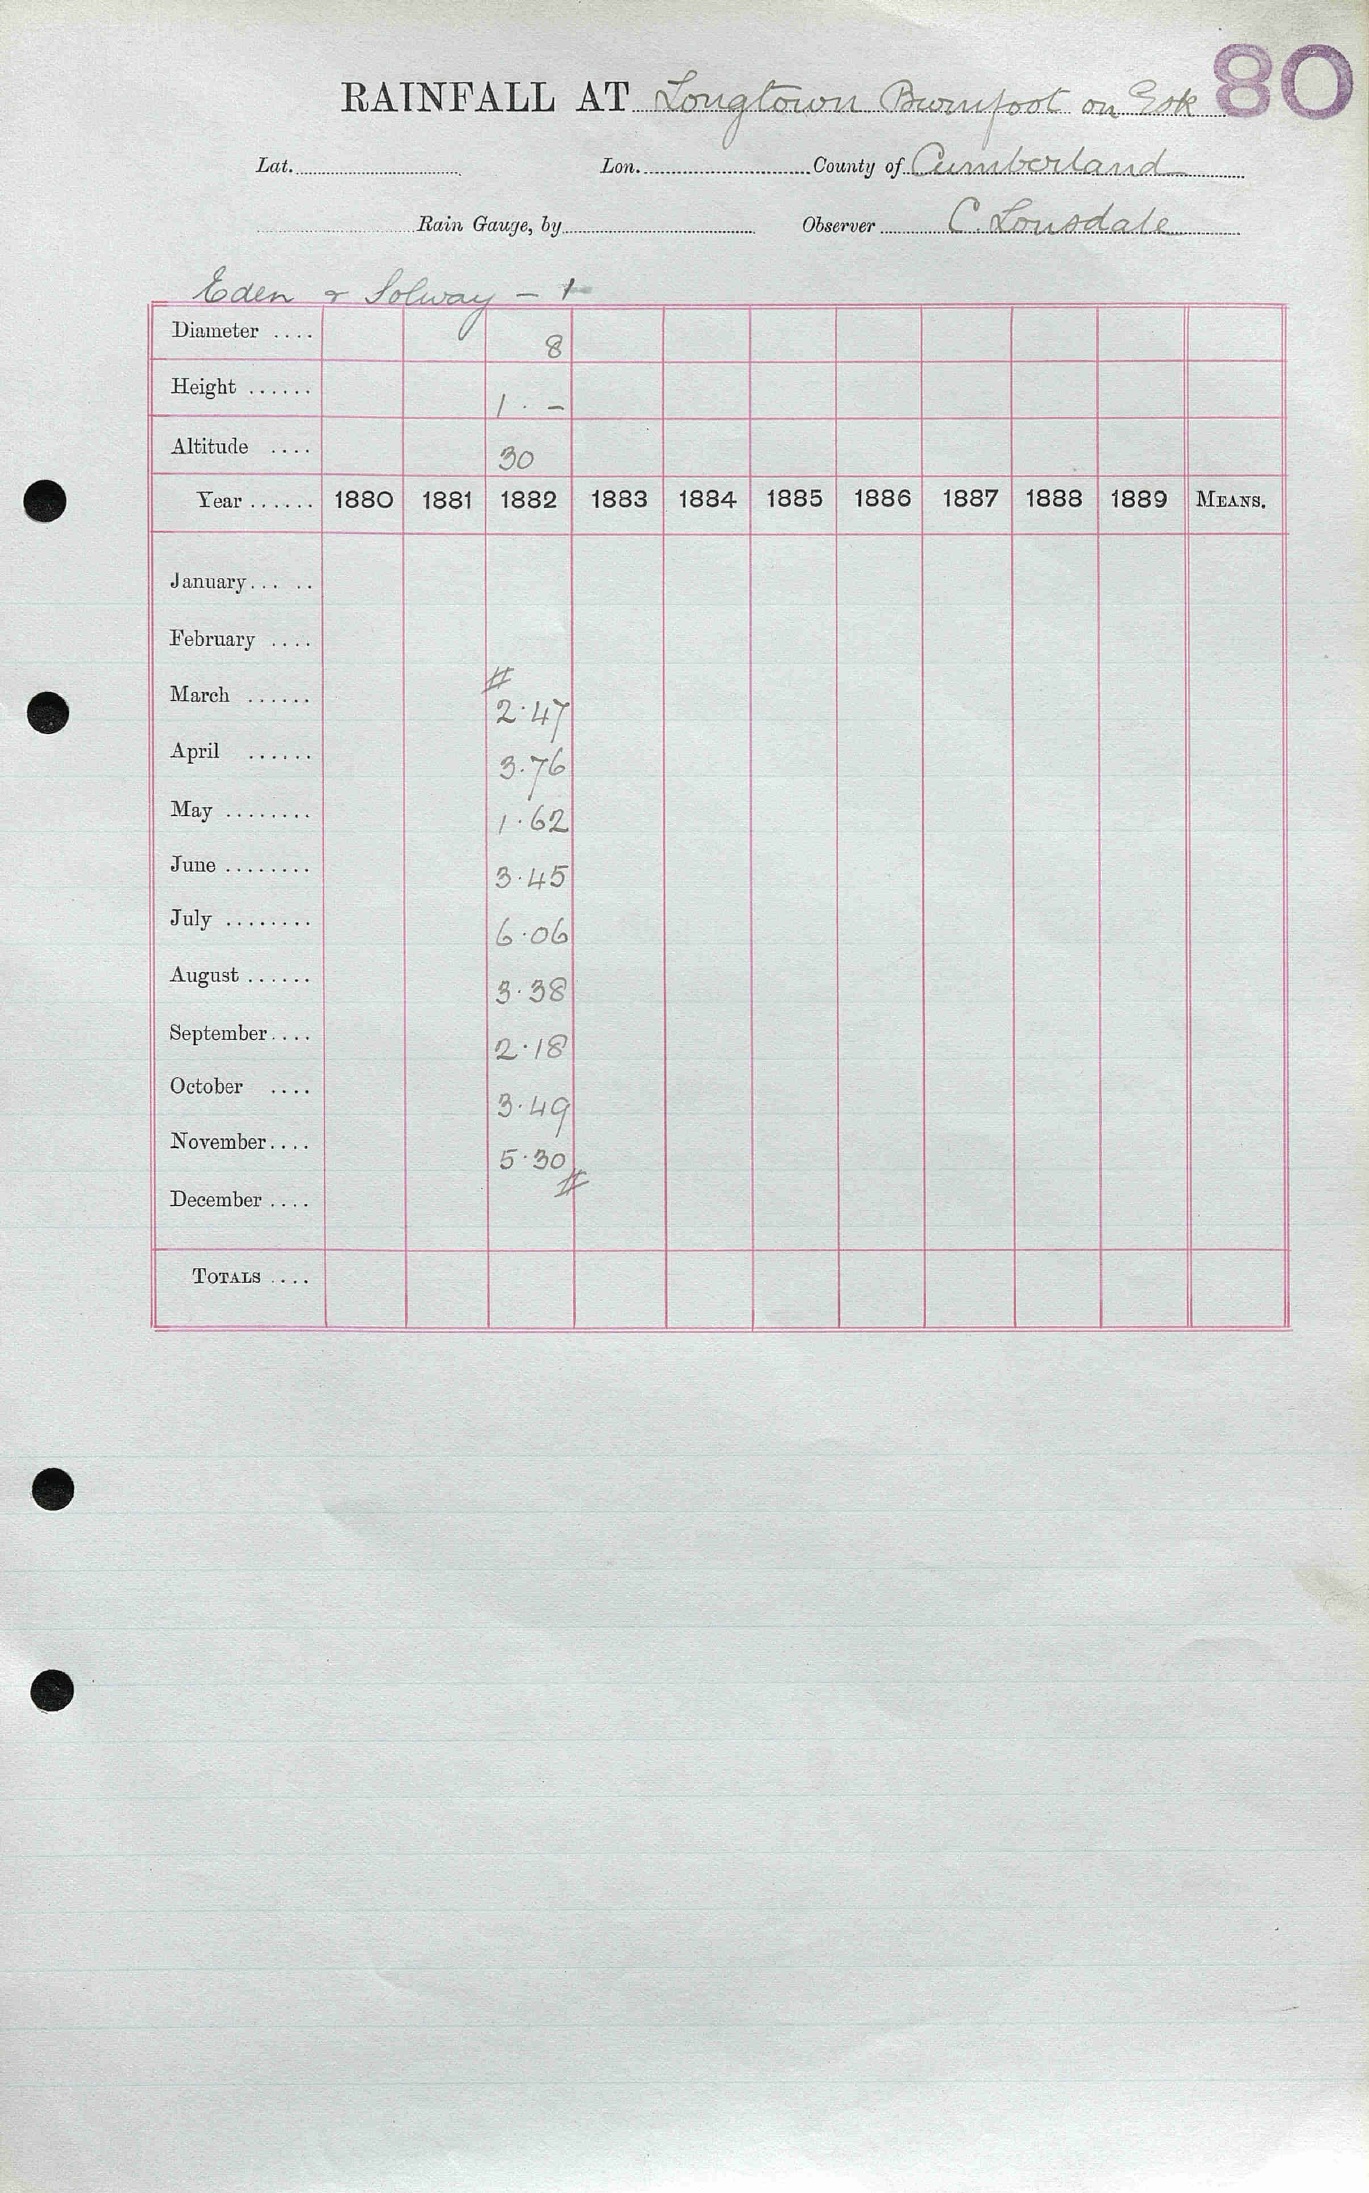 RAINFALL AT Longtown Burnfoot on Esk 80
Lat. Lon. County of Cumberland
Rain Gauge, by Observer C. Lonsdale
Eden & Solway - 1
Diameter .... 8
Height ...... 1 . -
Altitude .... 30
Year ...... 1880 1881 1882 1883 1884 1885 1886 1887 1888 1889 MEANS.
January... ..
February ....
#
March ...... 2.47
April ...... 3.76
May ........ 1.62
June ........ 3.45
July ........ 6.06
August ...... 3.38
September .... 2.18
October .... 3.49
November .... 5.30
#
December ....
TOTALS ....